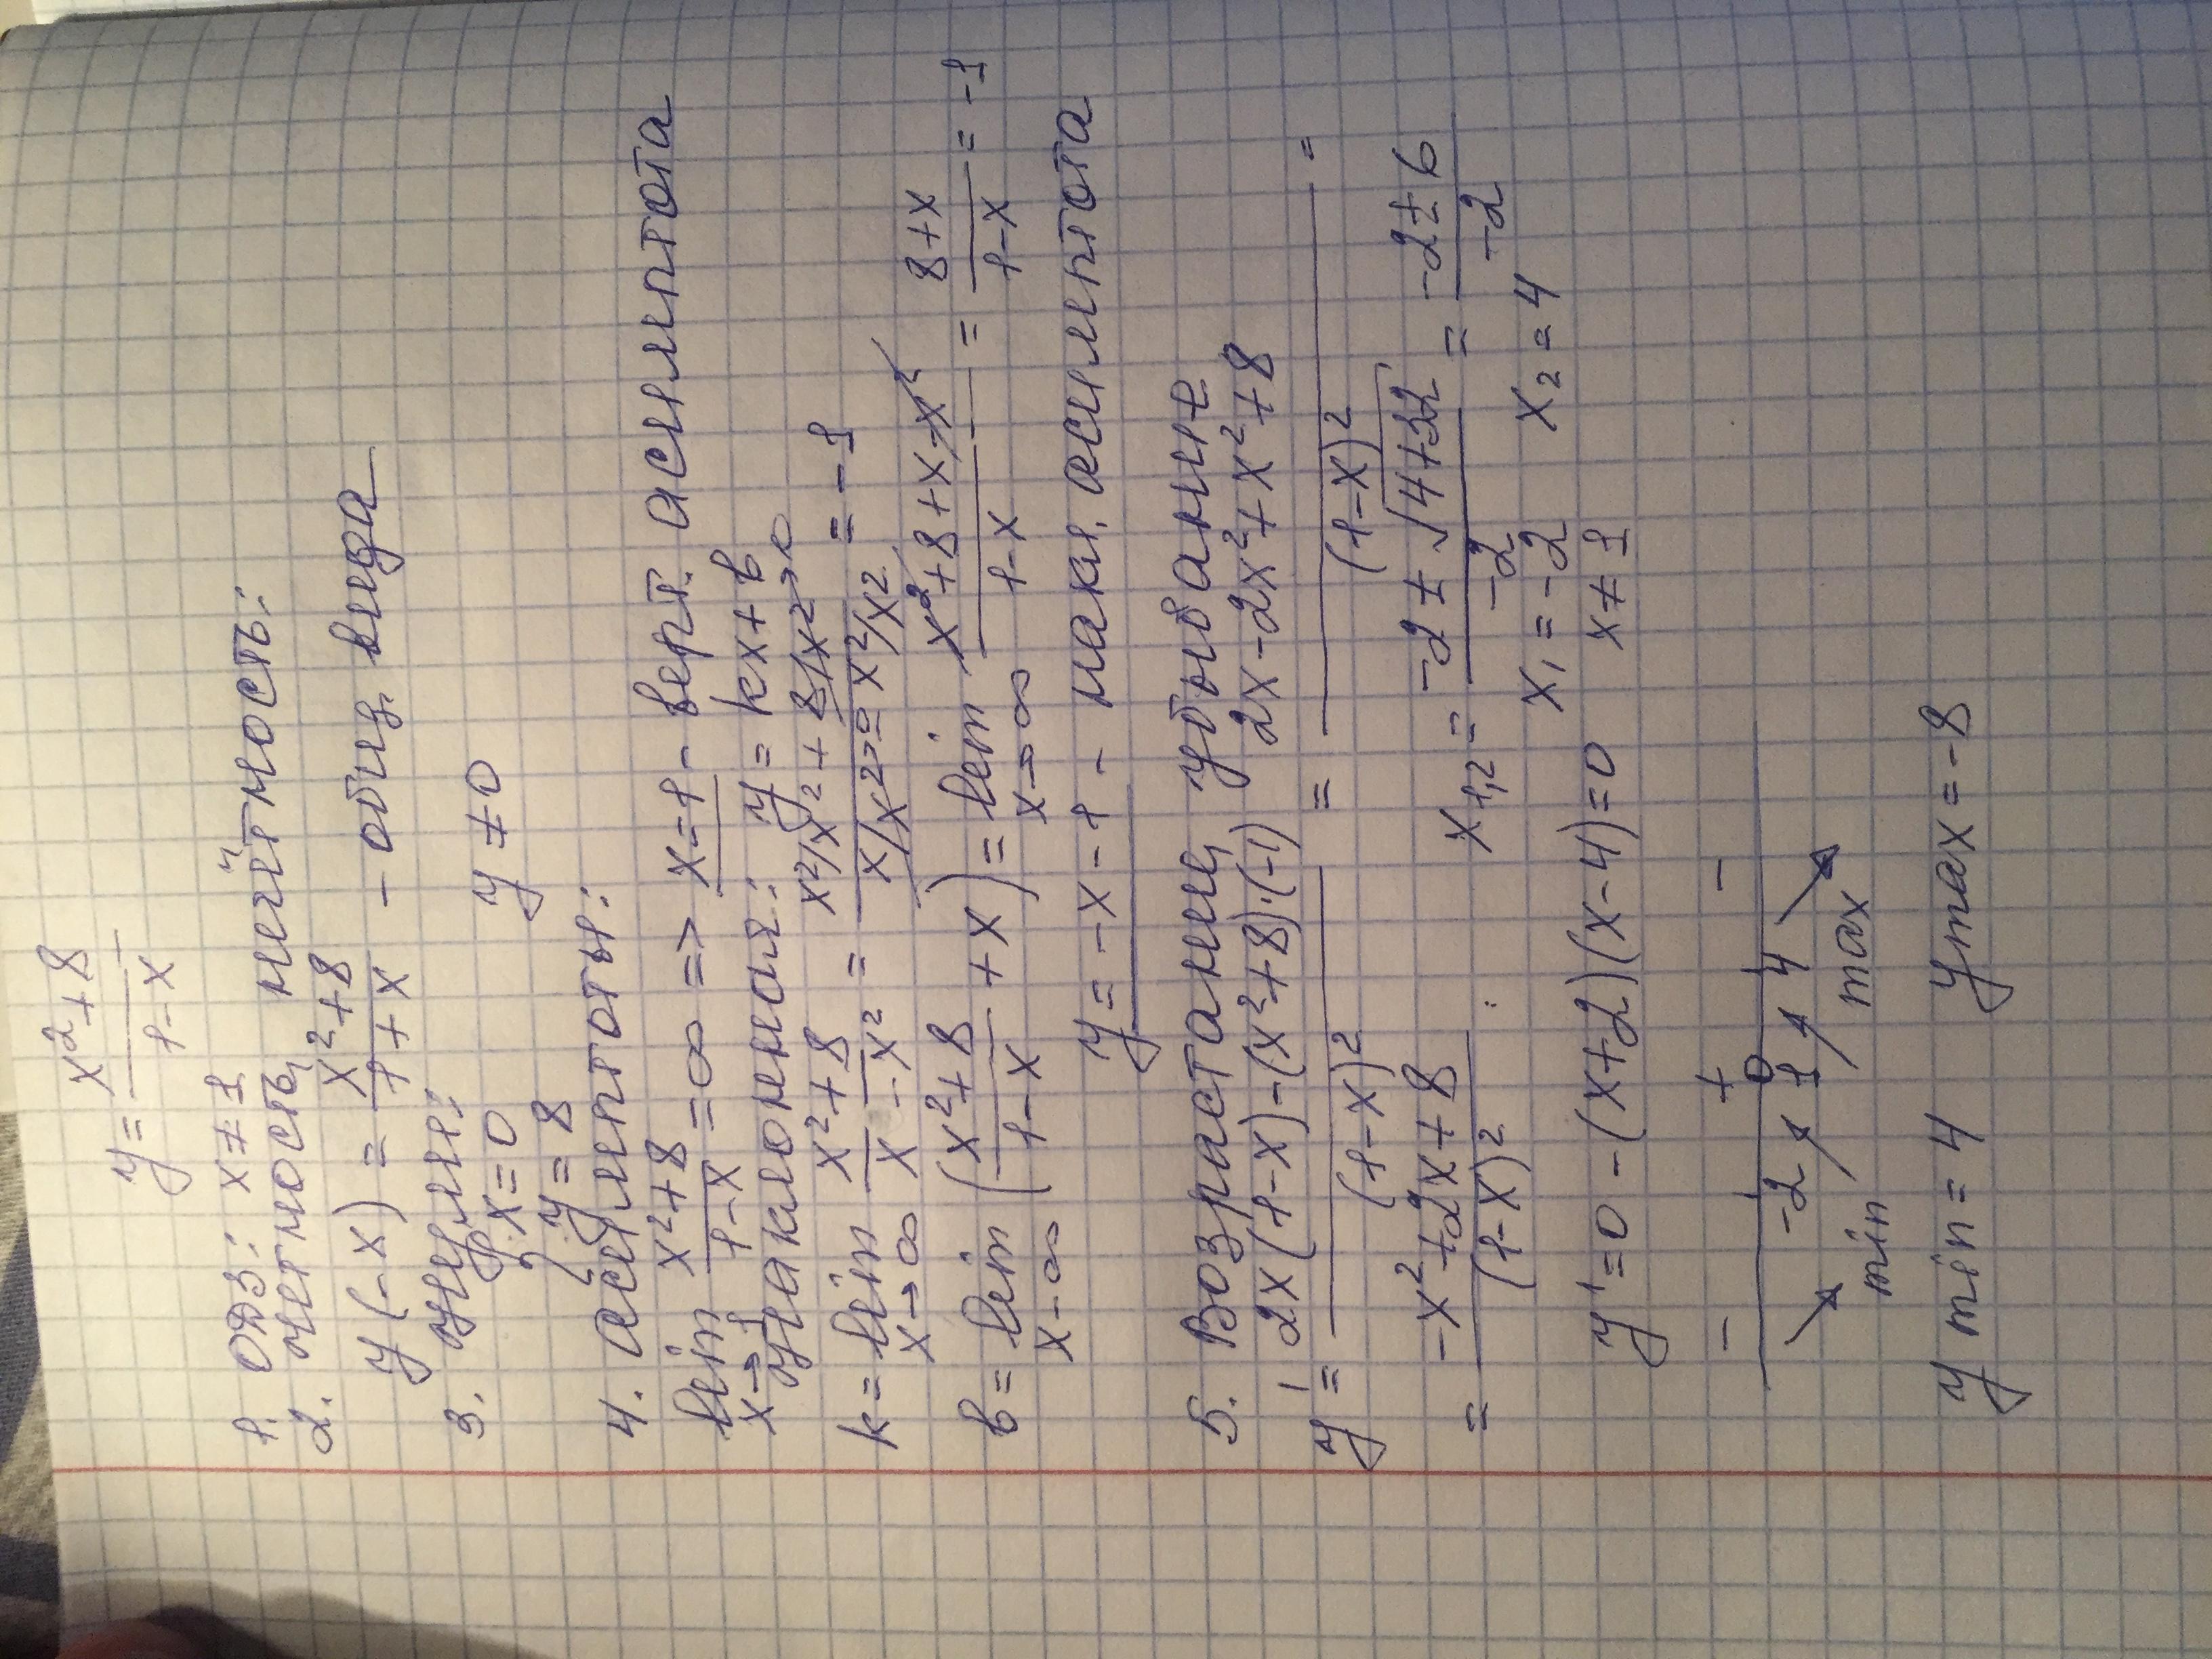 y = (x²+8)/(1-x)
1. ОДЗ: x ≠ 1
2. четность, нечётность:
y(-x) = (x²+8)/(1+x) - общ. вида
3. нули:
{ x=0
y=8 y≠0
4. асимптоты:
lim x→1 (x²+8)/(1-x) = ∞ => x=1 - верт. асимптота
наклонная: y = kx+b
k = lim x→∞ (x²+8)/(x-x²) = (x²/x² + 8/x²→0)/(x/x²→0 - x²/x²) = -1
b = lim x→∞ ((x²+8)/(1-x) + x) = lim x→∞ (x²+8+x-x²)/(1-x) = (8+x)/(1-x) = -1
y = -x-1 - накл. асимптота
5. Возрастание, убывание
y' = (2x(1-x)-(x²+8)·(-1))/(1-x)² = (2x-2x²+x²+8)/(1-x)² =
= (-x²+2x+8)/(1-x)² : x1,2 = (-2±√4+32)/-2 = (-2±6)/-2
x₁=-2 x₂=4
y'=0 -(x+2)(x-4)=0 x≠1
- + -
-2 1 4
min max
y min = 4 y max = -8